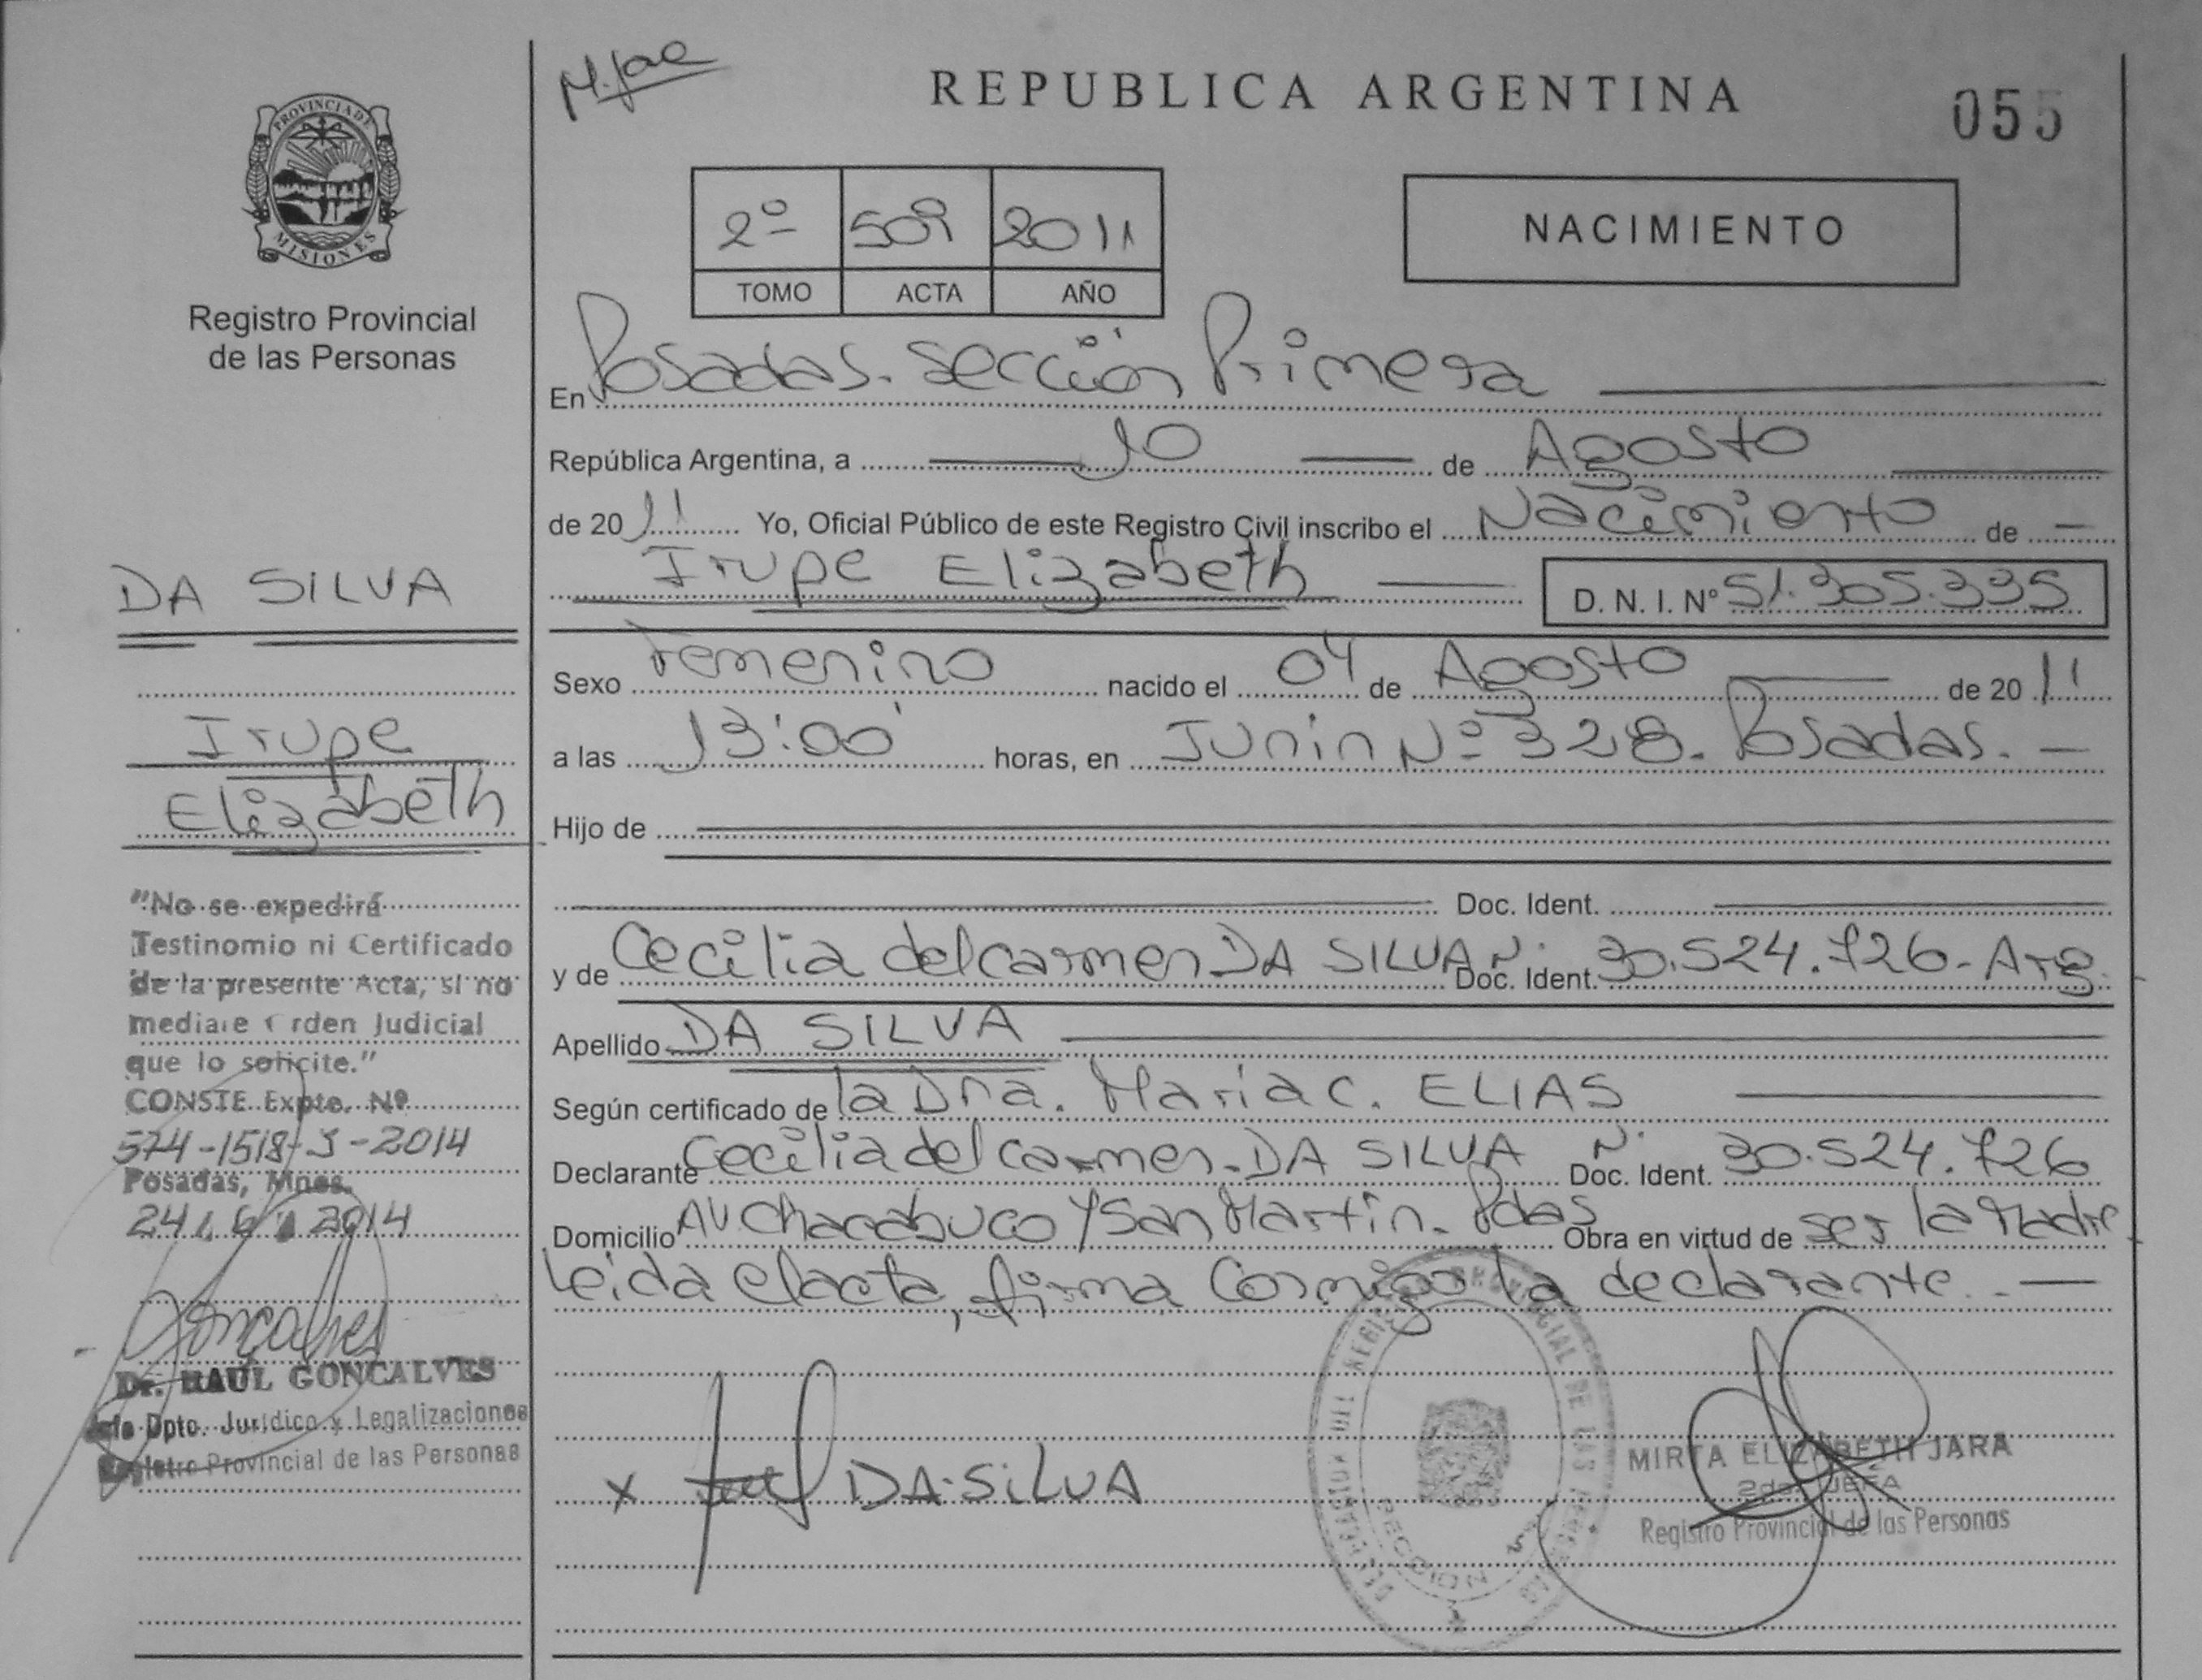 REPUBLICA ARGENTINA
055
PROVINCIA DE
MISIONES
Registro Provincial
de las Personas
2º 509 2011
TOMO ACTA AÑO
NACIMIENTO
En Posadas. Sección Primera
República Argentina, a 10 de Agosto
de 2011 Yo, Oficial Público de este Registro Civil inscribo el Nacimiento de
Irupe Elizabeth D. N. I. Nº 51.305.335
Sexo Femenino nacido el 04 de Agosto de 2011
a las 13:00 horas, en Junin Nº 328. Posadas.
Hijo de
Doc. Ident.
y de Cecilia del Carmen DA SILVA Doc. Ident. Nº 30.524.726 - Arg.
Apellido DA SILVA
Según certificado de la Dra. Maria C. ELIAS
Declarante Cecilia del Carmen DA SILVA Doc. Ident. Nº 30.524.726
Domicilio AV Chacabuco y San Martín. Pdas Obra en virtud de ser la Madre
Leida el acta, firma Conmigo la declarante.
x DA SILVA
MIRTA ELIZABETH JARA
2da. JEFA
Registro Provincial de las Personas
DA SILVA
Irupe
Elizabeth
"No se expedirá
Testinomio ni Certificado
de la presente Acta, si no
mediate Orden Judicial
que lo solicite."
CONSTE Expte. Nº
574-1518-J-2014
Posadas, Mnes.
24 6 2014
Goncalves
Dr. RAUL GONCALVES
Jefe Dpto. Jurídico y Legalizaciones
Registro Provincial de las Personas